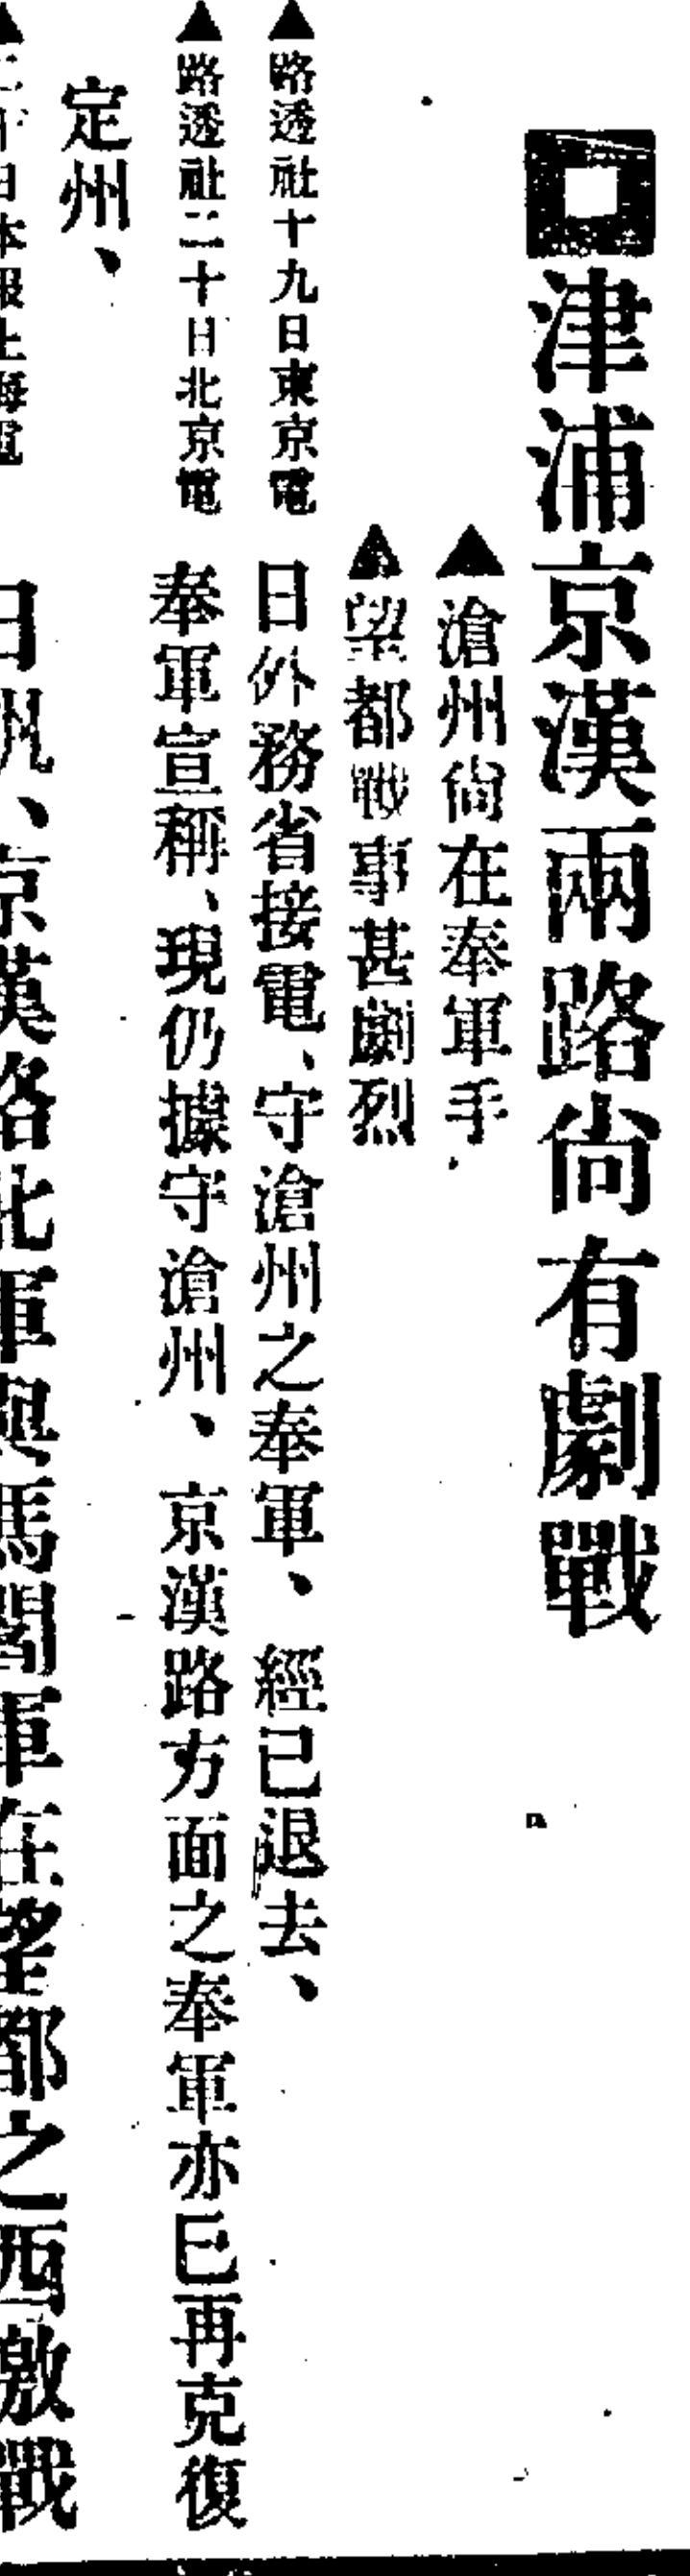 津浦京漢兩路尙有劇戰
▲滄州尙在奉軍手
▲望都戰事甚劇烈
▲路透社十九日東京電 日外務省接電、守滄州之奉軍、經已退去、
▲路透社二十日北京電 奉軍宣稱、現仍據守滄州、京漢路方面之奉軍亦已再克復
定州、
▲二十日本報上海電 日訊、京漢路北軍與馮閻軍在望都之西激戰